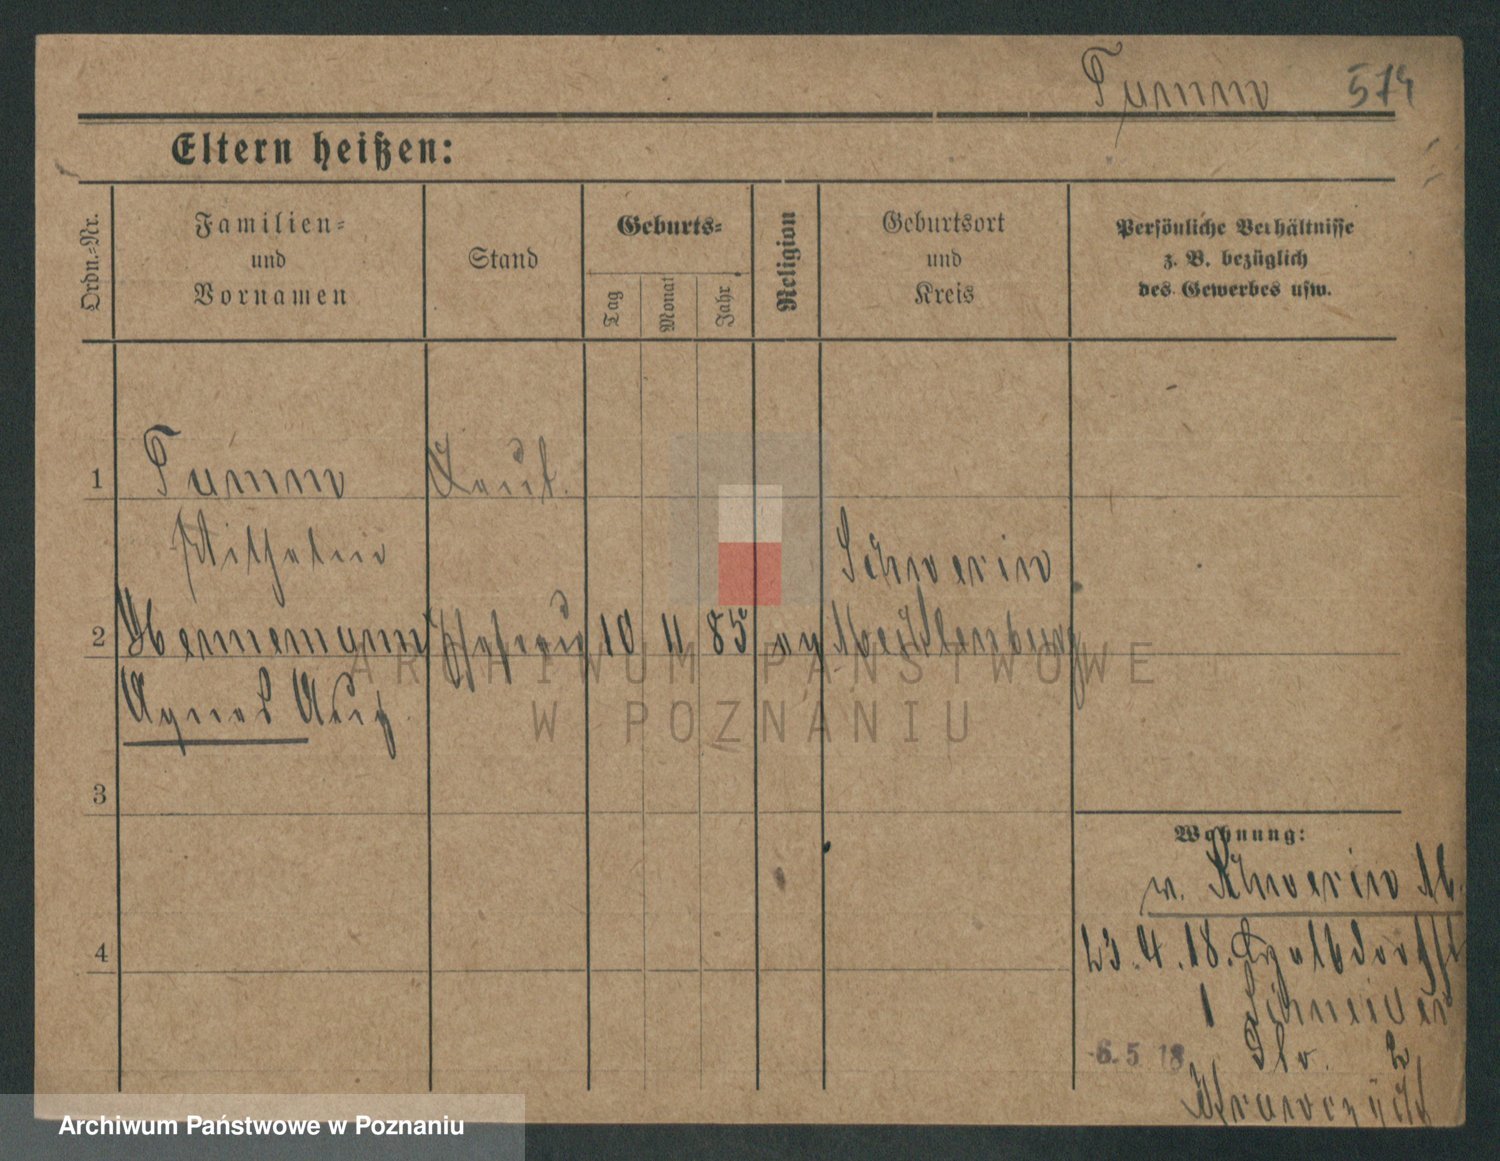 Tumm 574
Eltern heißen:
Ordn.-Nr.
Familien-
und
Vornamen
Stand
Geburts-
Tag
Monat
Jahr
Religion
Geburtsort
und
Kreis
Persönliche Verhältnisse
z. B. bezüglich
des Gewerbes usw.
1 Tumm Leut.
Wilhelm
Schwerin
2 Hennemann Ehefrau 10 11 85 ev Mecklenburg
Agnes Aug
3
Wohnung:
v. Schwerin M.
4
23.4.18. Halbdorfst
1 Schneider
6.5.18
2
Krawczyck
ARCHIWUM PAŃSTWOWE
W POZNANIU
Archiwum Państwowe w Poznaniu